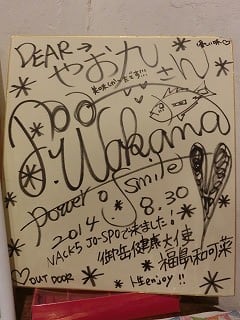 DEAR→
やお九さん
美味しかったです!!!
優しい味♡
Wakana
power of Smile
2014 8.30
NACK5 JO-SPOで来ました!
御岳健康大使
福島和可菜
OUT DOOR
人生enjoy!!